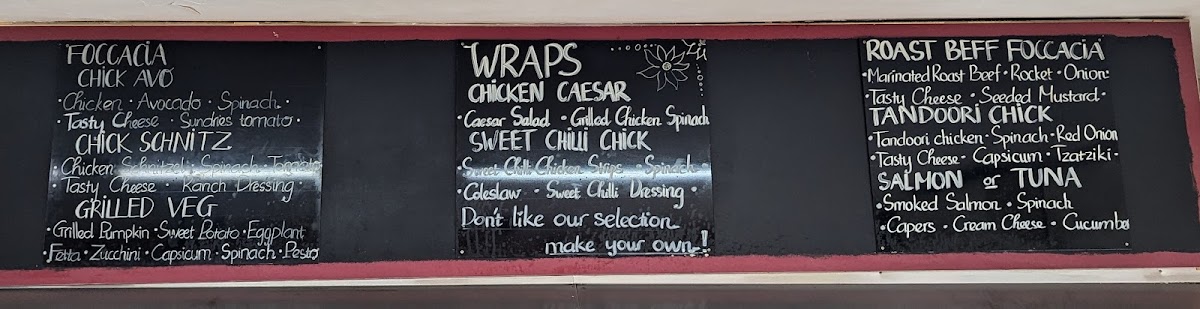 FOCCACIA
CHICK AVO
• Chicken • Avocado • Spinach •
• Tasty Cheese • Sundries tomato •
CHICK SCHNITZ
• Chicken Schnitzel • Spinach • Tomato
• Tasty Cheese • Ranch Dressing •
GRILLED VEG
• Grilled Pumpkin • Sweet Potato • Eggplant
• Fetta • Zucchini • Capsicum • Spinach • Pesto
WRAPS
CHICKEN CAESAR
• Caesar Salad • Grilled Chicken Spinach
SWEET CHILLI CHICK
• Sweet Chilli Chicken Strips • Spinach •
• Coleslaw • Sweet Chilli Dressing •
Don't like our selection
make your own!
ROAST BEFF FOCCACIA
• Marinated Roast Beef • Rocket • Onion •
• Tasty Cheese • Seeded Mustard •
TANDOORI CHICK
• Tandoori chicken • Spinach • Red Onion
• Tasty Cheese • Capsicum • Tzatziki •
SALMON or TUNA
• Smoked Salmon • Spinach
• Capers • Cream Cheese • Cucumber